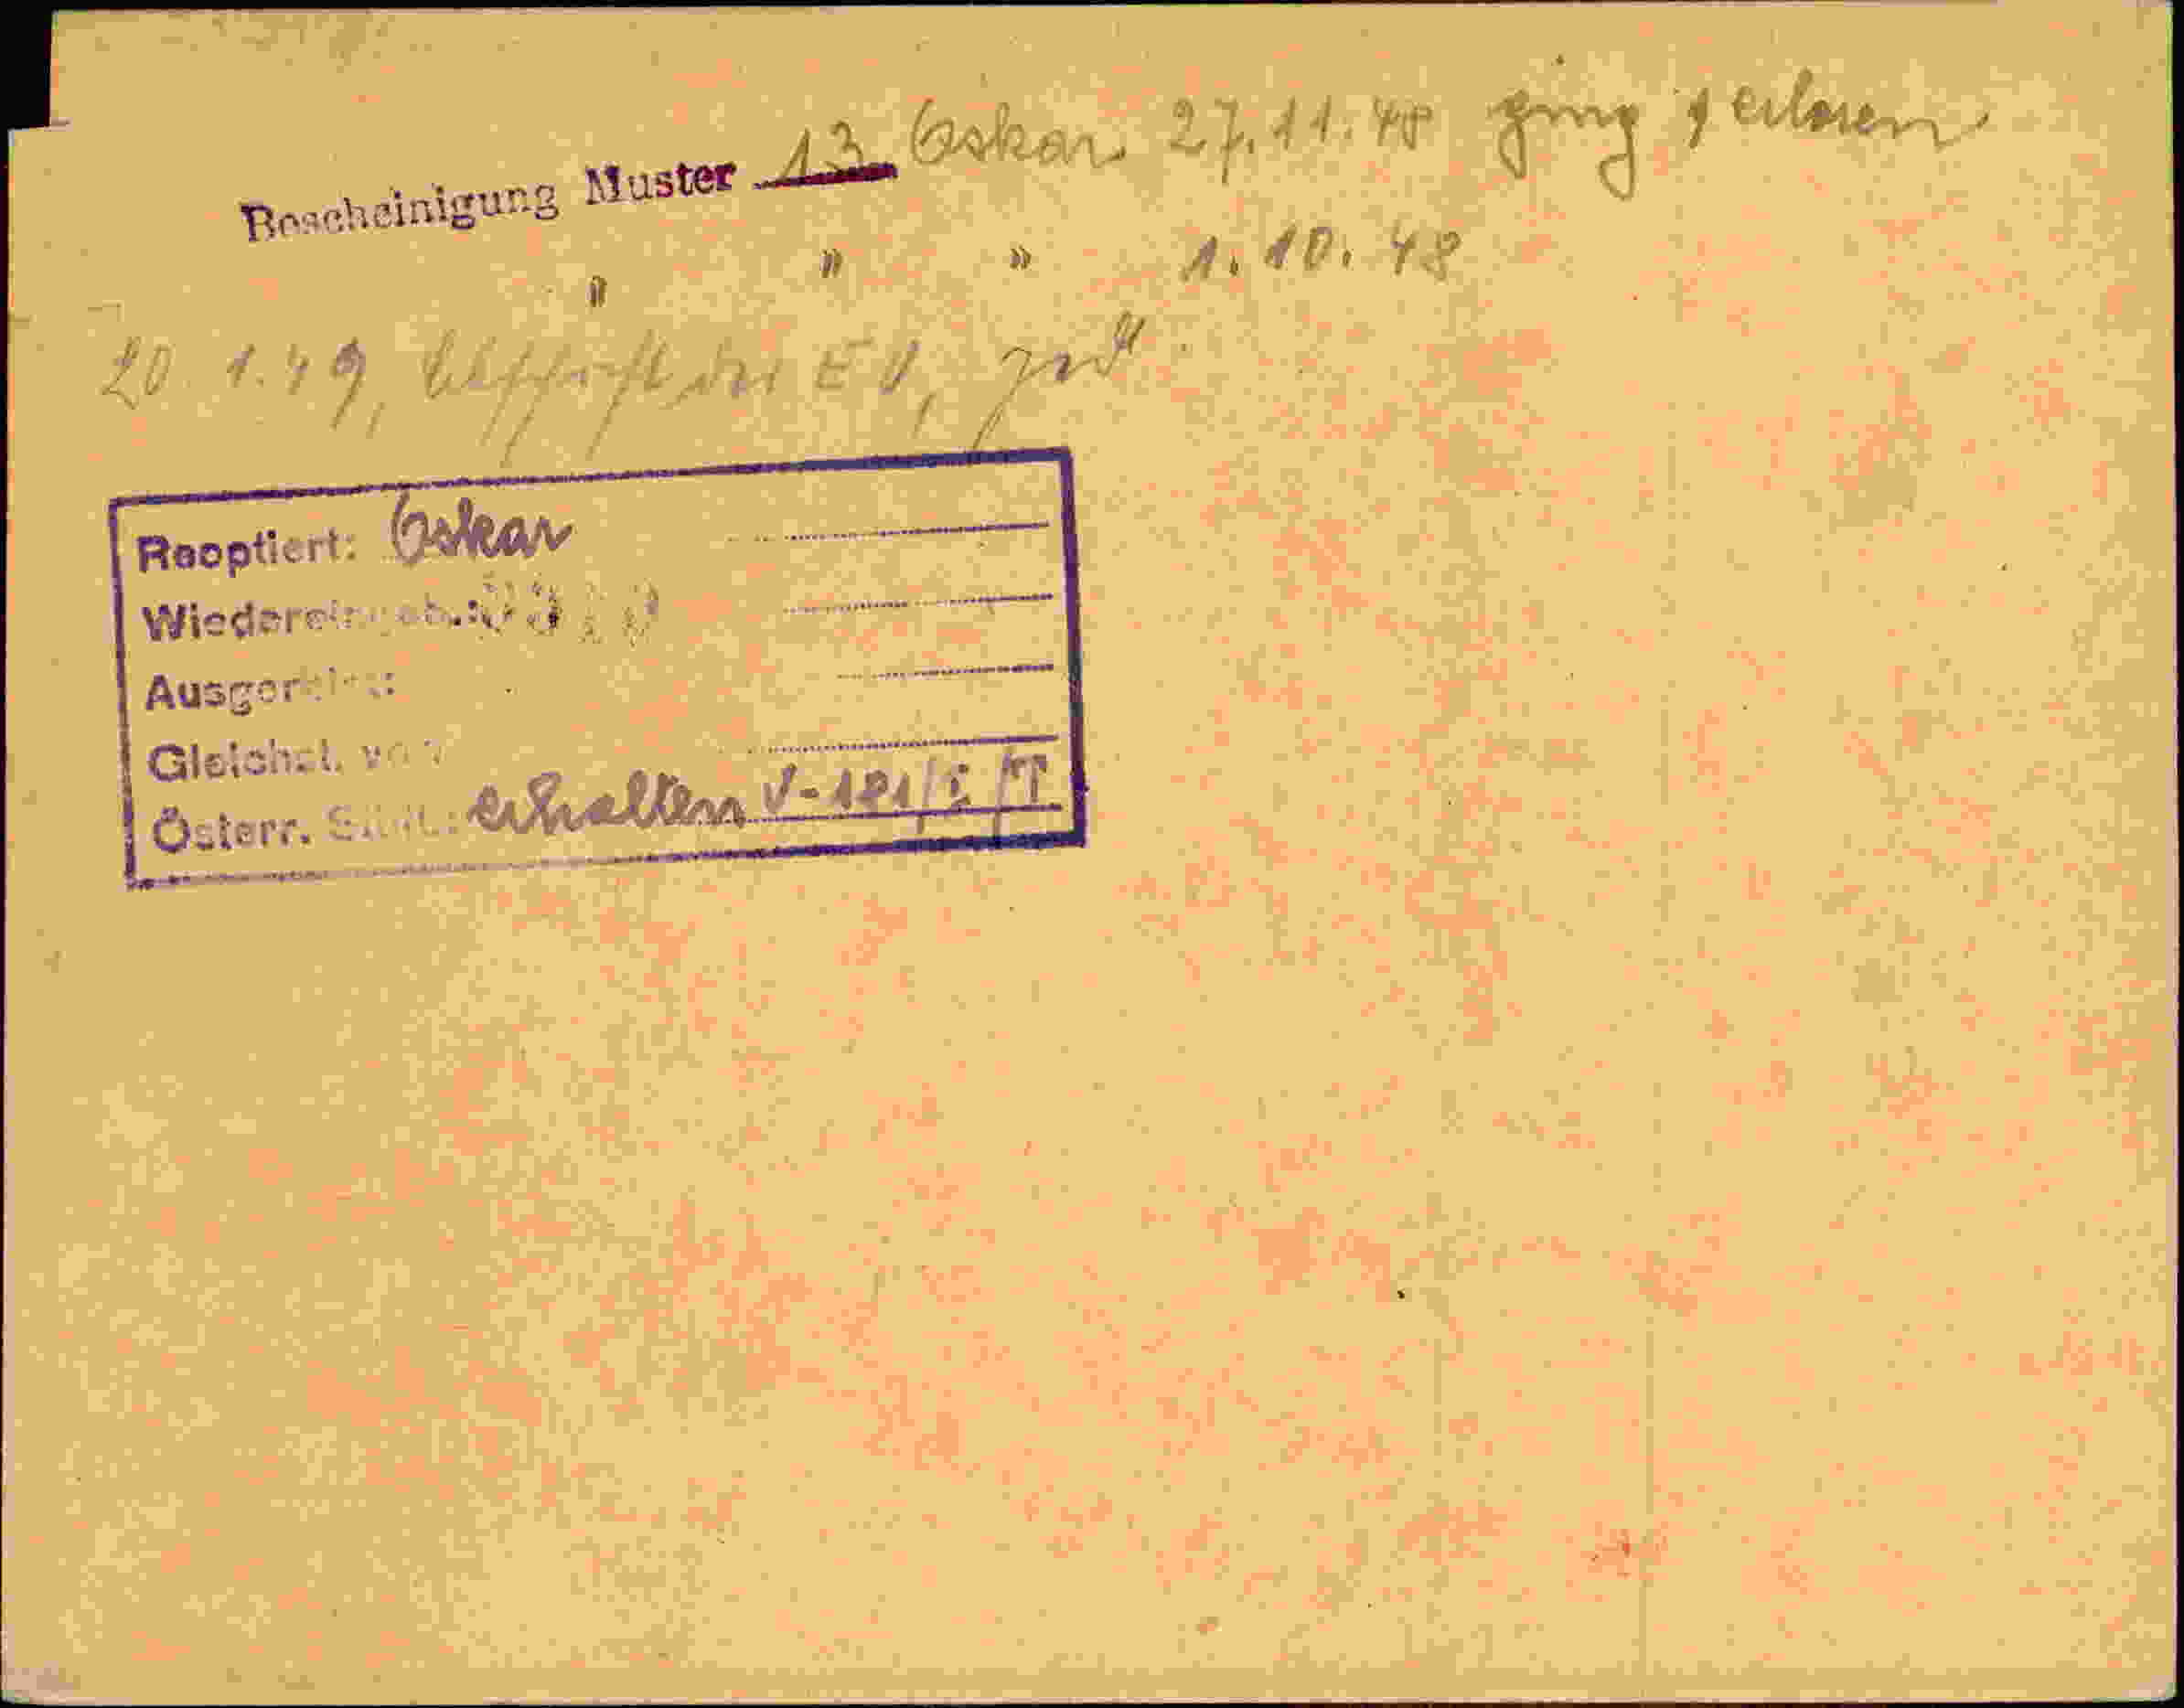 Bescheinigung Muster 13 Oskar 27.11.48 ging verloren
" " " 1.10.48
20.1.49, Abschrift der EV,
Reoptiert: Oskar
Wiedereingeb.:
Ausgereist:
Gleichst. v.
Österr. erhalten V-181/5/T